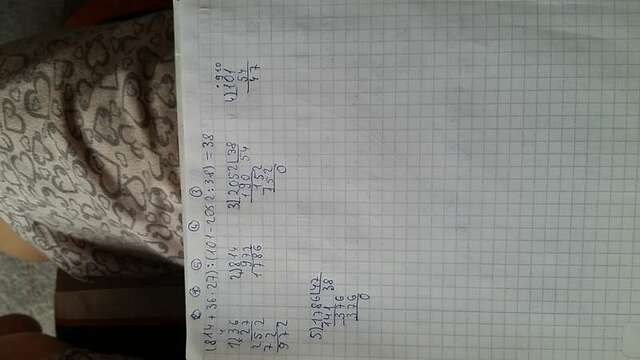 ② ① ⑤ ④ ③
(814 + 36·27) : (101 - 2052 : 38) = 38
1) 36
27
252
72
972
2) 814
972
1786
3) 2052 38
190 54
152
152
0
4) 101
54
47
5) 1786 47
141 38
376
376
0